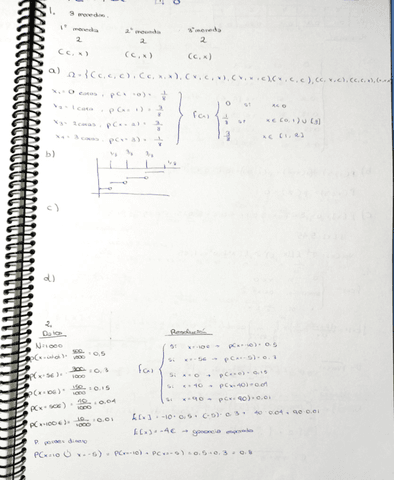 1. 3 monedas.
1º moneda 2º moneda 3º moneda
2 2 2
(c, x) (c, x) (c, x)
a) Ω = {(c, c, c), (c, x, x), (x, c, x), (x, x, c), (x, c, c),
x₁= 0 caras, p(x=0)= 1/8
x₂= 1 cara, p(x=1)= 3/8
x₃= 2 caras, p(x=2)= 3/8
x₄= 3 caras, p(x=3)= 1/8
f(x)
0 si x<0
1/8 si x∈{0,1}∪{3}
3/8 x∈{1,2}
b)
c)
d)
2.
Datos Resolución
N=1000
500/1000 = 0.5
p(x=5€)= 300/1000 = 0.3
p(x=10€)= 150/1000 = 0.15
p(x=50€)= 40/1000 = 0.04
p(x=100€)= 10/1000 = 0.01
f(x)
si x=-10€ → p(x=-10)= 0.5
si x=-5€ → p(x=-5)= 0.3
si x=0 → p(x=0)= 0.15
si x=40 → p(x=40)=0.04
si x=90 → p(x=90)=0.01
E[x] = -10·0.5 + (-5)·0.3 + 40·0.04 + 90·0.01
E[x]= -4€ → ganancia esperada
P perder dinero
P(x=-10 ∪ x=-5) = P(x=-10) + P(x=-5) = 0.5+0.3 = 0.8